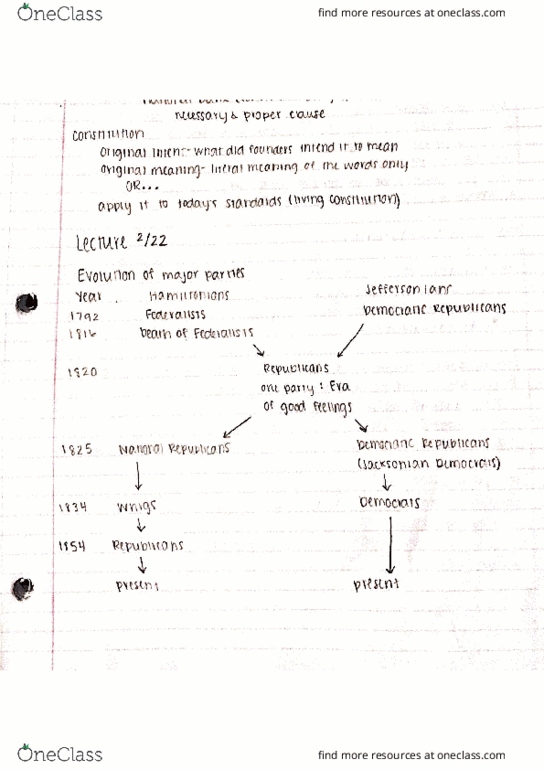 OneClass
find more resources at oneclass.com
necessary & proper clause
constitution
original intent- what did founders intend it to mean
original meaning- literal meaning of the words only
OR...
apply it to today's standards (living constitution)
Lecture 2/22
Evolution of major parties
Year Hamiltonians Jeffersonians
1792 Federalists Democratic Republicans
1816 Death of Federalists
1820 Republicans
one party: Era
of good feelings
1825 National Republicans Democratic Republicans
(Jacksonian Democrats)
1834 Whigs Democrats
1854 Republicans
present present
OneClass
find more resources at oneclass.com